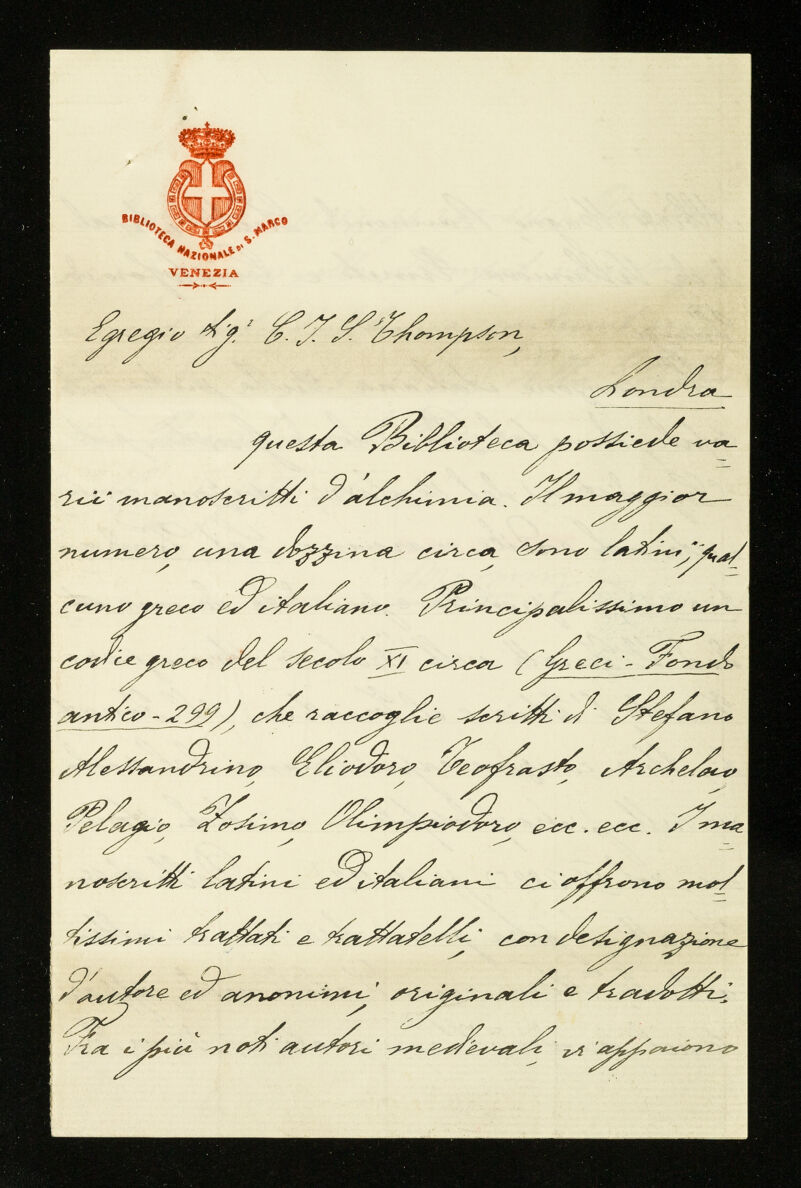 BIBLIOTECA NAZIONALE DI S. MARCO
VENEZIA
Egregio Sigr C. J. S. Thompson,
Londra
questa Biblioteca possiede va=
rii manoscritti d'alchimia. Il maggior
numero, una dozzina circa, sono latini; qual=
cuno greco ed italiano. Principalissimo un
codice greco del secolo XI circa (Greci - Fondo
antico - 299), che raccoglie scritti di Stefano
Alessandrino, Eliodoro, Teofrasto, Archelao,
Pelagio, Zosimo, Olimpiodoro, ecc. ecc. I ma=
noscritti latini ed italiani ci offrono mol=
tissimi trattati e trattatelli, con designazione
d'autore ed anonimi, originali e tradotti.
Fra i più noti autori medievali, vi appaiono